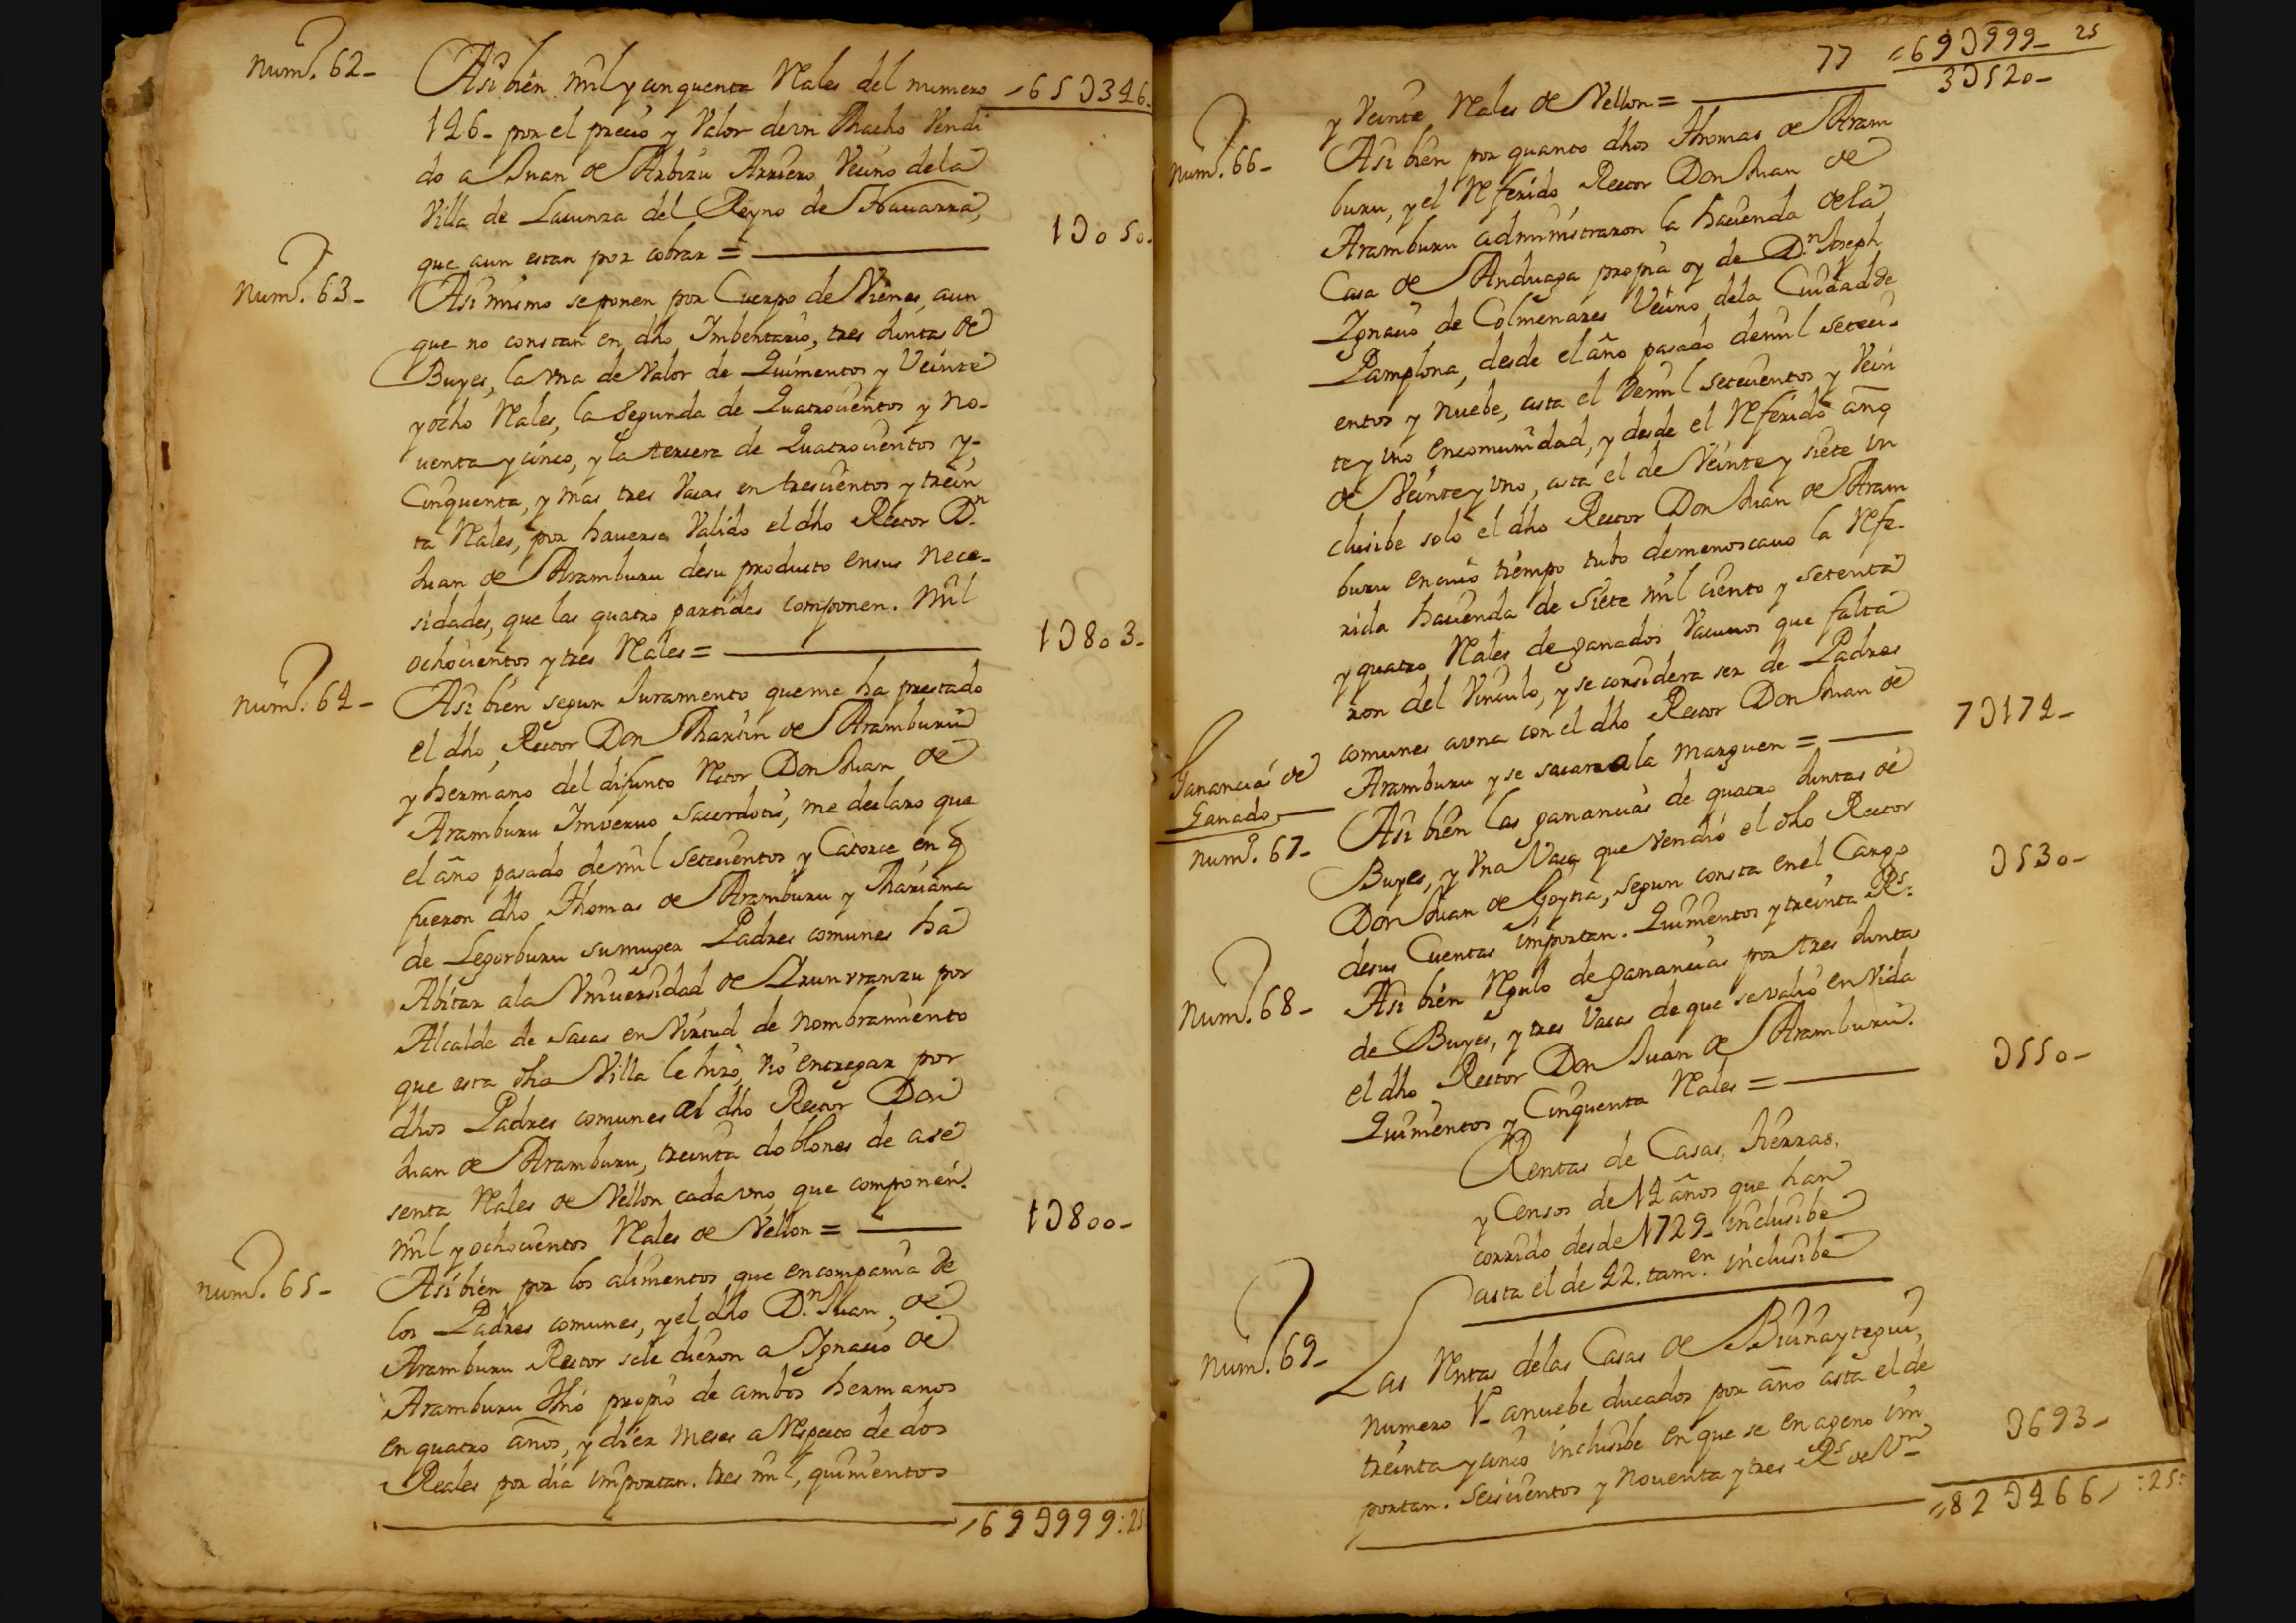 Num.º 62_
Asi bien mil y cinquenta Rales del numero
"65U346_
146_ por el precio y Valor de vn Macho Vendi
do a Juan de Arbizu Arriero Vecino de la
Villa de Lacunza del Reyno de Nauarra,
que aun estan por cobrar =
1U050_
Num.º 63_
Asi mismo se ponen por Cuerpo de Vienes, aun
que no constan en dho Imbentario, tres Juntas de
Buyes, la vna de Valor de Quinientos y Veinte
y ocho Rales, la Segunda de Quatrocientos y no-
uenta y cinco, y la tercera de Quatrocientos y-
Cinquenta, y mas tres Vacas en trescientos y trein
ta Rales, por hauerse Valido el dho Rector D.n
Juan de Aramburu de su producto en sus nece-
sidades, que las quatro partidas componen. Mil
ochocientos y tres Rales =
1U803_
Num.º 64_
Asi bien segun Juramento que me ha prestado
el dho Rector Don Martin de Aramburu
y hermano del difunto Retor Don Juan de
Aramburu In veruo Sacerdotis, me declaro que
el año pasado de mil Setecientos y Catorce en q
fueron dho Thomas de Aramburu y Mariana
de Legorburu su muger Padres comunes ha
Abitar a la Vniuersidad de Yrun vranzu por
Alcalde de Sacas en Virtud de nombramiento
que esta dha Villa le hizo, vio entregar por
dhos Padres comunes al dho Rector Don
Juan de Aramburu, treinta doblones de a se
senta Rales de Vellon cada vno, que componen.
Mil y ochocientos Rales de Vellon =
1U800_
Num.º 65_
Asi bien por los alimentos que en compania de
los Padres comunes, y el dho D.n Juan de
Aramburu Rector se le dieron a Ygnacio de
Aramburu Thio propio de ambos hermanos
en quatro años, y diez meses a Respecto de dos
Reales por dia importan. tres mil, quinientos
"69U999:25
77
"69U999_ 25
y Veinte Rales de Vellon =
3U520_
Num.º 66_
Asi bien por quanto dhos Thomas de Aram
buru, y el Referido Rector Don Juan de
Aramburu administraron la hacienda de la
Casa de Anduaga propia oy de D.n Joseph
Ygnacio de Colmenares Vecino de la Ciudad de
Pamplona, desde el año pasado de mil setecí-
entos y nuebe, asta el de mil setecientos y Vein
te y vno en comunidad, y desde el Referido año
de Veinte y vno, asta el de Veinte y siete in
clusibe solo el dho Rector Don Juan de Aram
buru en cuio tiempo tubo de menoscauo la Refe-
rida hacienda de Siete mil ciento y setenta
y quatro Rales de ganados Vacunos que falta
ron del Vinculo, y se considera ser de Padres
comunes a vna con el dho Rector Don Juan de
Aramburu y se sacan a la marguen =
7U174_
Ganancias de
Ganado
Num.º 67_
Asi bien las ganancias de quatro Juntas de
Buyes, y vna Vaca que Vendio el dho Rector
Don Juan de Goytia, segun consta en el Cargo
de sus Cuentas importan. Quinientos y treinta R.s
U530_
Num.º 68_
Asi bien Regulo de ganancias por tres Juntas
de Buyes, y tres Vacas de que se valio en Vida
el dho Rector Don Juan de Aramburu.
Quinientos y Cinquenta Rales =
U550_
Rentas de Casas, tierras,
y Censos de 14 años que han
corrido desde 1729_ inclusibe
asta el de 42. tam.en inclusibe
Num.º 69_
Las Rentas de las Casas de
numero 1º_ a nuebe ducados por año asta el de
treinta y cinco inclusibe en que se enageno im
portan. Seiscientos y nouenta y tres R.s de V.n
U693_
"82U466:25: